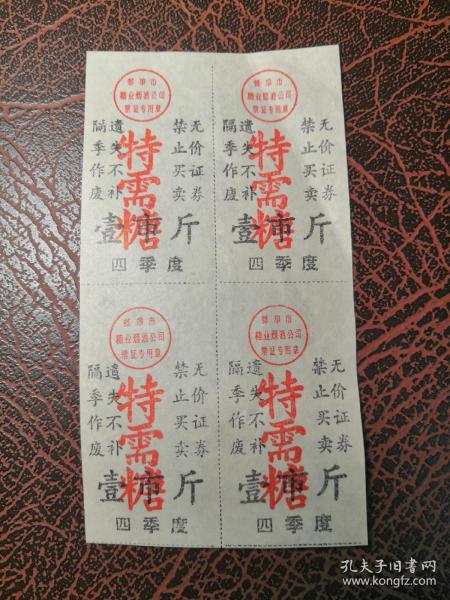 蚌埠市
糖业烟酒公司
票证专用章
无价证券
禁止买卖
遗失不补
隔季作废
特需糖
壹市斤
四季度
蚌埠市
糖业烟酒公司
票证专用章
无价证券
禁止买卖
遗失不补
隔季作废
特需糖
壹市斤
四季度
蚌埠市
糖业烟酒公司
票证专用章
无价证券
禁止买卖
遗失不补
隔季作废
特需糖
壹市斤
四季度
蚌埠市
糖业烟酒公司
票证专用章
无价证券
禁止买卖
遗失不补
隔季作废
特需糖
壹市斤
四季度
孔夫子旧书网
www.kongfz.com